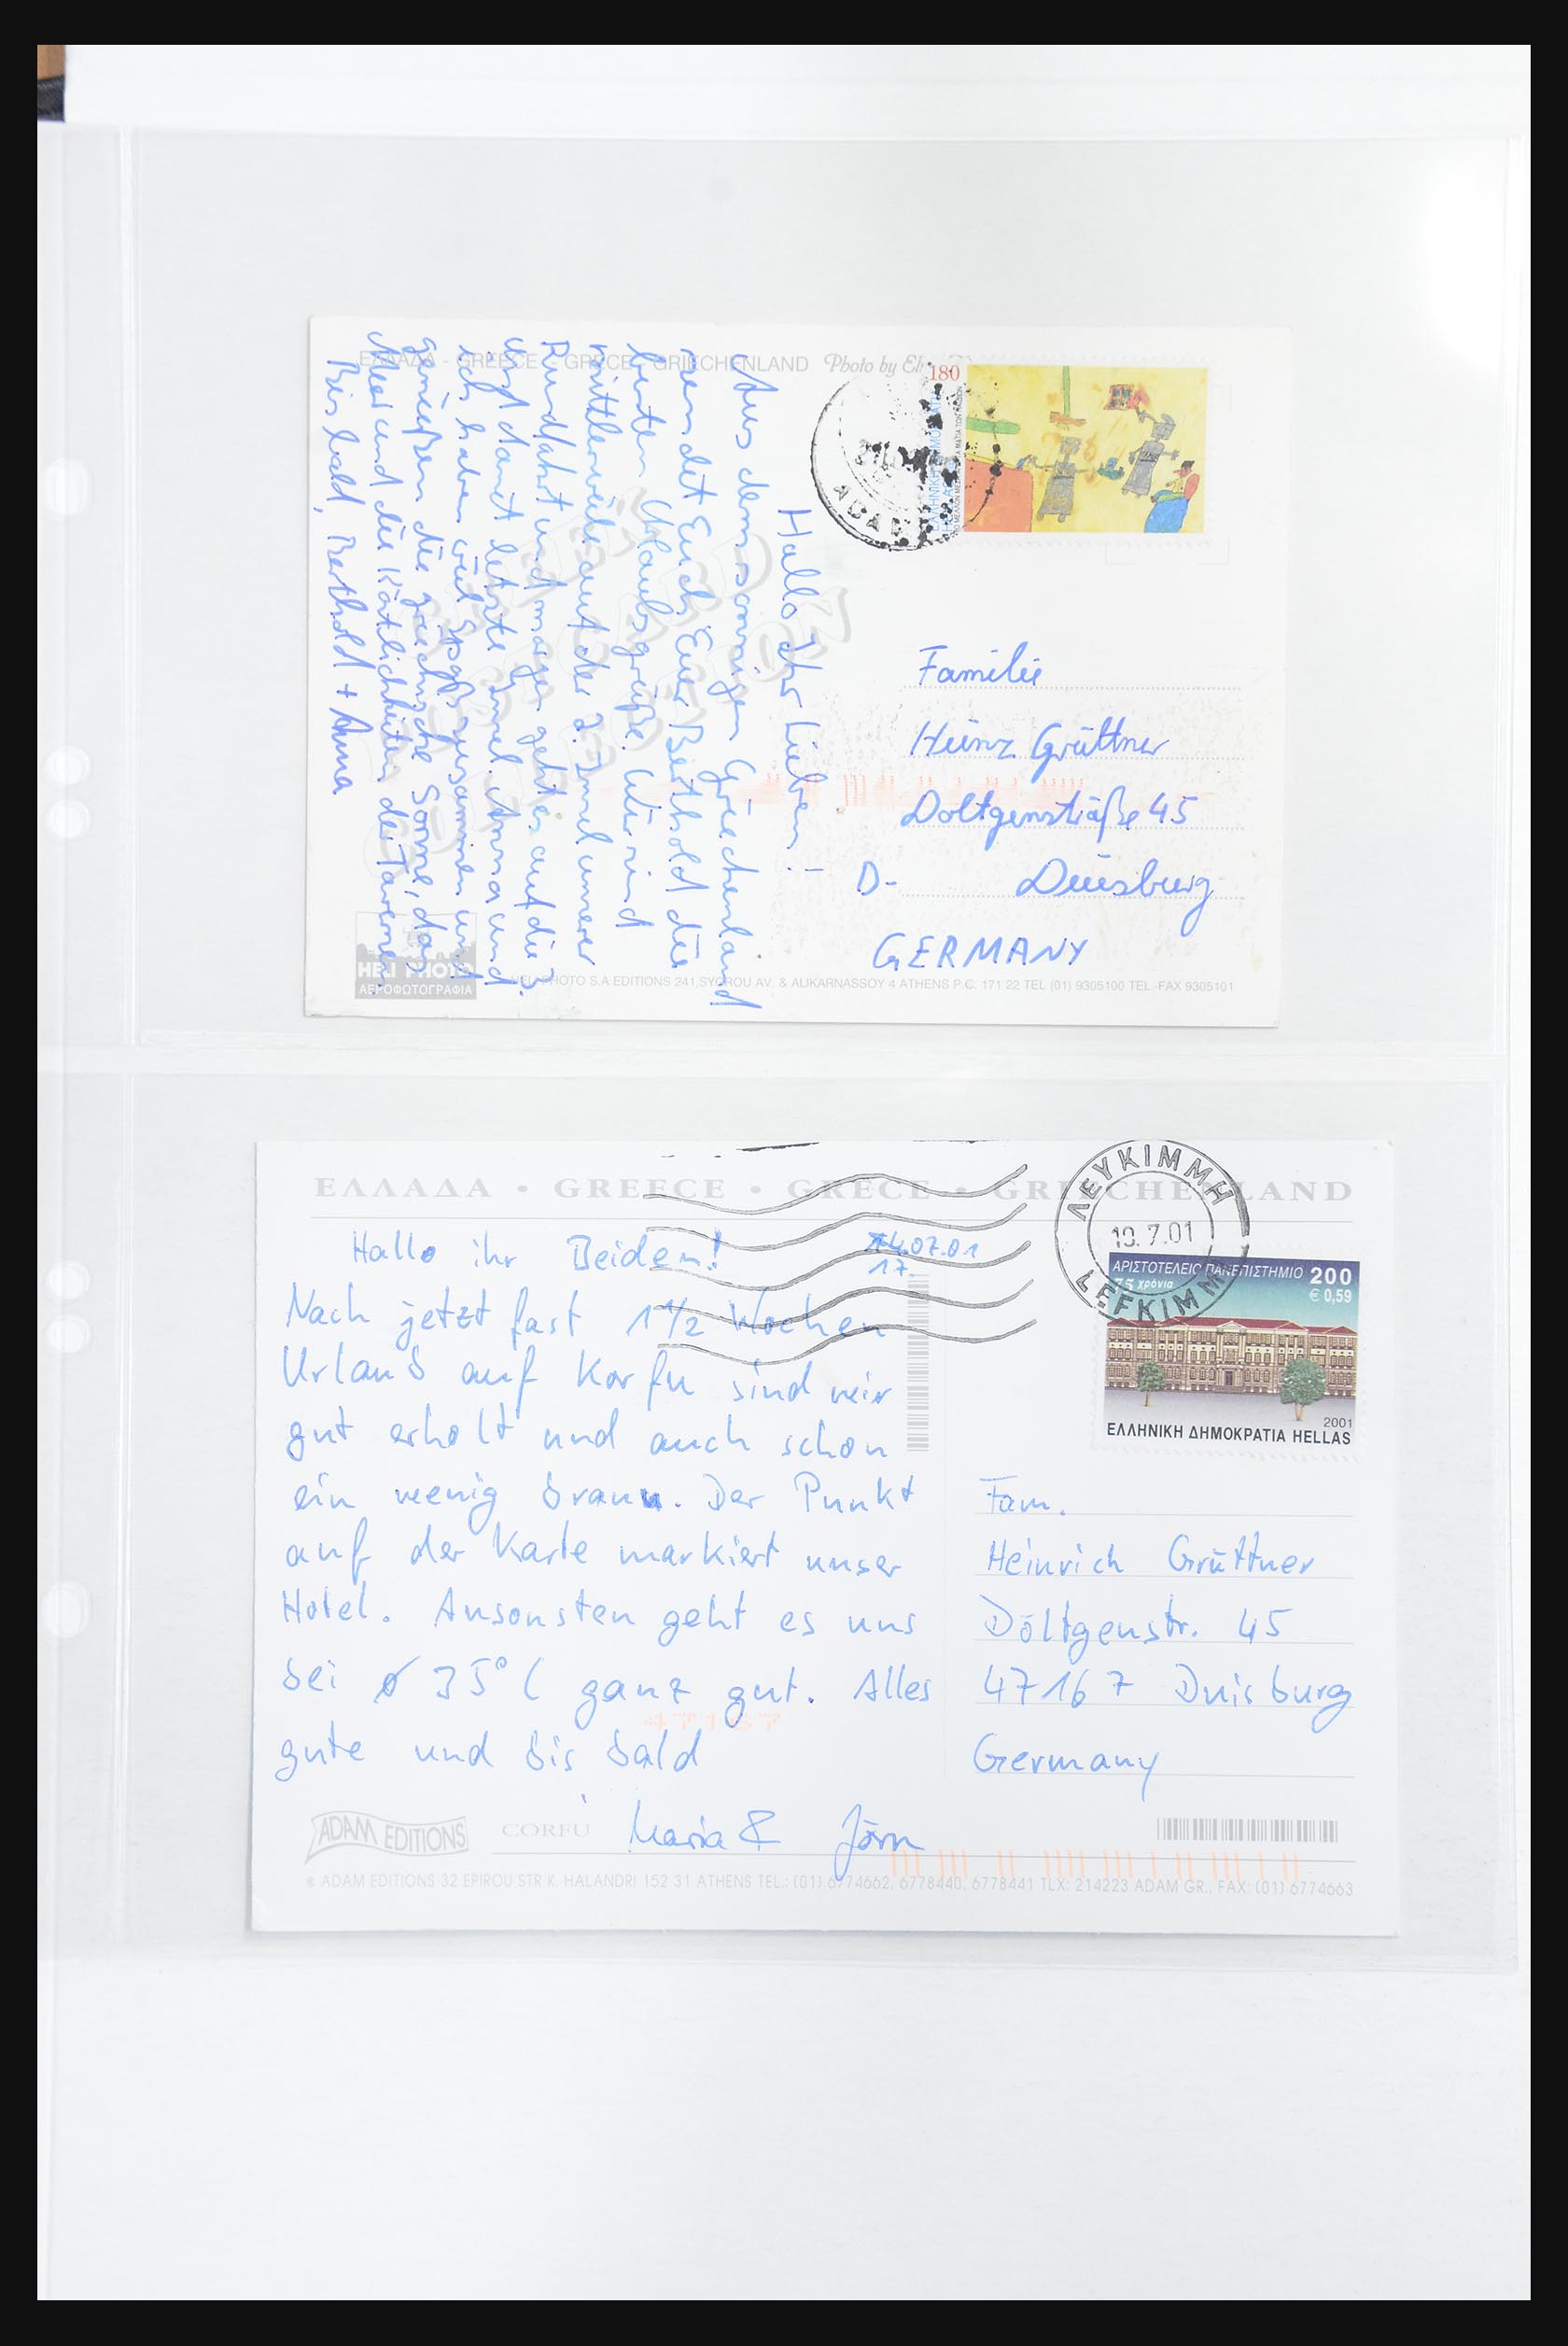 ΕΛΛΑΔΑ - GREECE - GRECE - GRIECHENLAND Photo by
180
Hallo Ihr Lieben!
Aus dem sonnigen Griechenland
sendet Euch Euer Berthold die
besten Urlaubsgrüße. Wir sind
mittlerweile auf der 2. Insel unserer
Rundfahrt und morgen geht es auf die 3.
und damit letzte Insel. Anna und
ich haben viel Spaß zusammen und
genießen die griechische Sonne, das
Meer und die Köstlichkeiten der Tavernen.
Bis bald, Berthold + Anna
GREEK
POST CARD
COLLECTION
Familie
Heinz Grüttner
Doltgenstraße 45
D- Duisburg
GERMANY
HELI PHOTO
ΑΕΡΟΦΩΤΟΓΡΑΦΙΑ
HELI PHOTO S.A EDITIONS 241,SYGROU AV. & ALIKARNASSOY 4 ATHENS P.C. 171 22 TEL (01) 9305100 TEL.-FAX 9305101
ΕΛΛΑΔΑ • GREECE • GRECE • GRIECHENLAND
ΛΕΥΚΙΜΜΗ
19.7.01
LEFKIMMI
ΑΡΙΣΤΟΤΕΛΕΙΟ ΠΑΝΕΠΙΣΤΗΜΙΟ 200
75 χρόνια € 0,59
2001
ΕΛΛΗΝΙΚΗ ΔΗΜΟΚΡΑΤΙΑ HELLAS
Hallo ihr Beiden! 14.07.01
17.
Nach jetzt fast 1 1/2 Wochen
Urlaub auf Korfu sind wir
gut erholt und auch schon
ein wenig braun. Der Punkt
auf der Karte markiert unser
Hotel. Ansonsten geht es uns
bei ø 35°C ganz gut. Alles
gute und bis bald
Maria & Jörn
Fam.
Heinrich Grüttner
Döltgenstr. 45
47167 Duisburg
Germany
47167
ADAM EDITIONS CORFU
® ADAM EDITIONS 32 EPIROU STR K. HALANDRI 152 31 ATHENS TEL.: (01) 6774662, 6778440, 6778441 TLX: 214223 ADAM GR., FAX: (01) 6774663